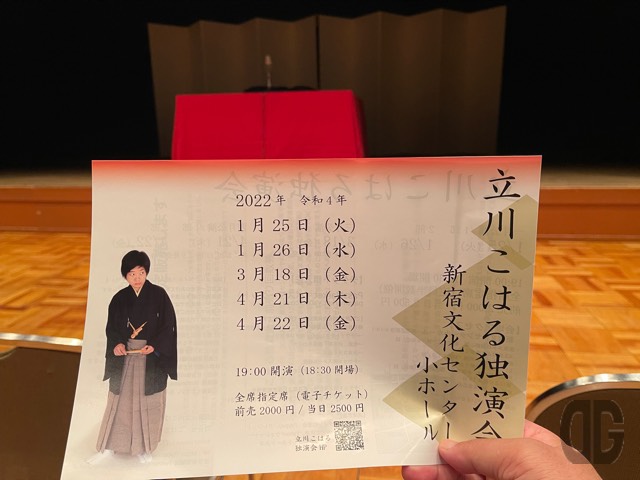 立川こはる独演会
新宿文化センター
小ホール
2022年 令和4年
1月25日（火）
1月26日（水）
3月18日（金）
4月21日（木）
4月22日（金）
19:00開演（18:30開場）
全席指定席（電子チケット）
前売2000円/当日2500円
立川こはる
独演会HP